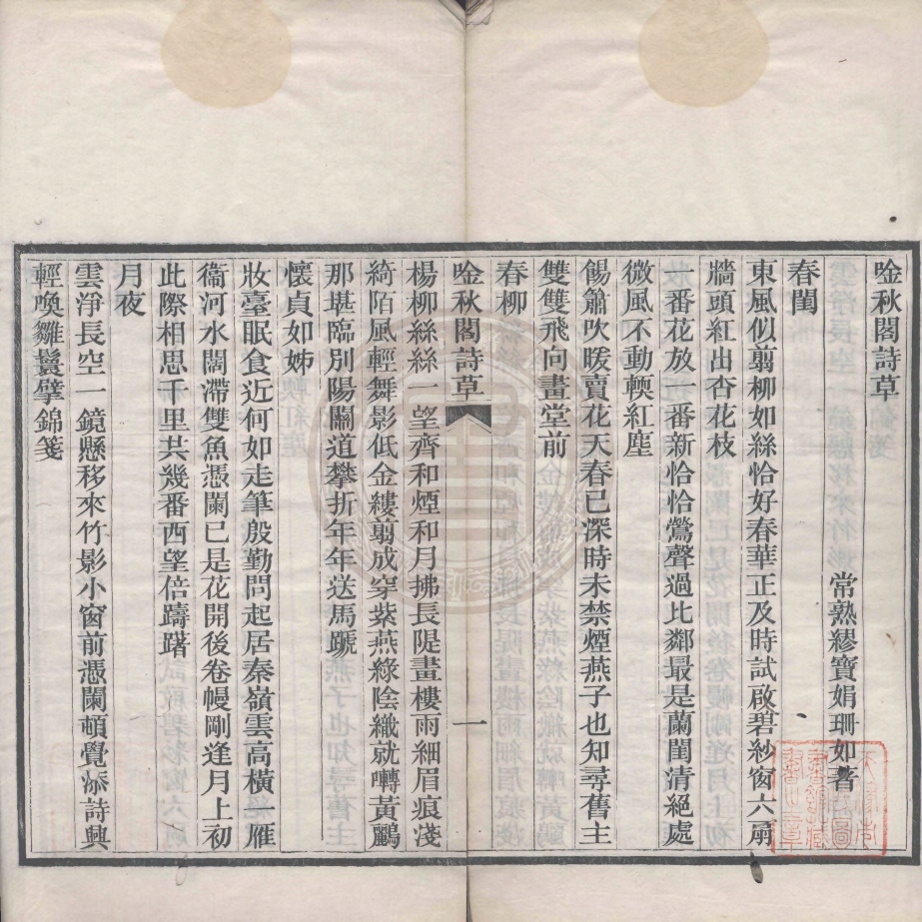 唫秋閣詩草
常熟繆寶娟珊如著
春閨
東風似翦柳如絲恰好春華正及時試啟碧紗窗六扇
牆頭紅出杏花枝
一番花放一番新恰恰鶯聲過比鄰最是蘭閨清絕處
微風不動輭紅塵
餳簫吹暖賣花天春已深時未禁煙燕子也知尋舊主
雙雙飛向畫堂前
春柳
唫秋閣詩草
一
楊柳絲絲一望齊和煙和月拂長隄畫樓雨細眉痕淺
綺陌風輕舞影低金縷翦成穿紫燕綠陰織就囀黃鸝
那堪臨別陽關道攀折年年送馬蹏
懷貞如姊
妝臺眠食近何如走筆殷勤問起居秦嶺雲高橫一雁
衞河水闊滯雙魚憑闌已是花開後卷幔剛逢月上初
此際相思千里共幾番西望倍躊躇
月夜
雲淨長空一鏡懸移來竹影小窗前憑闌頓覺添詩興
輕喚雛鬟擘錦箋